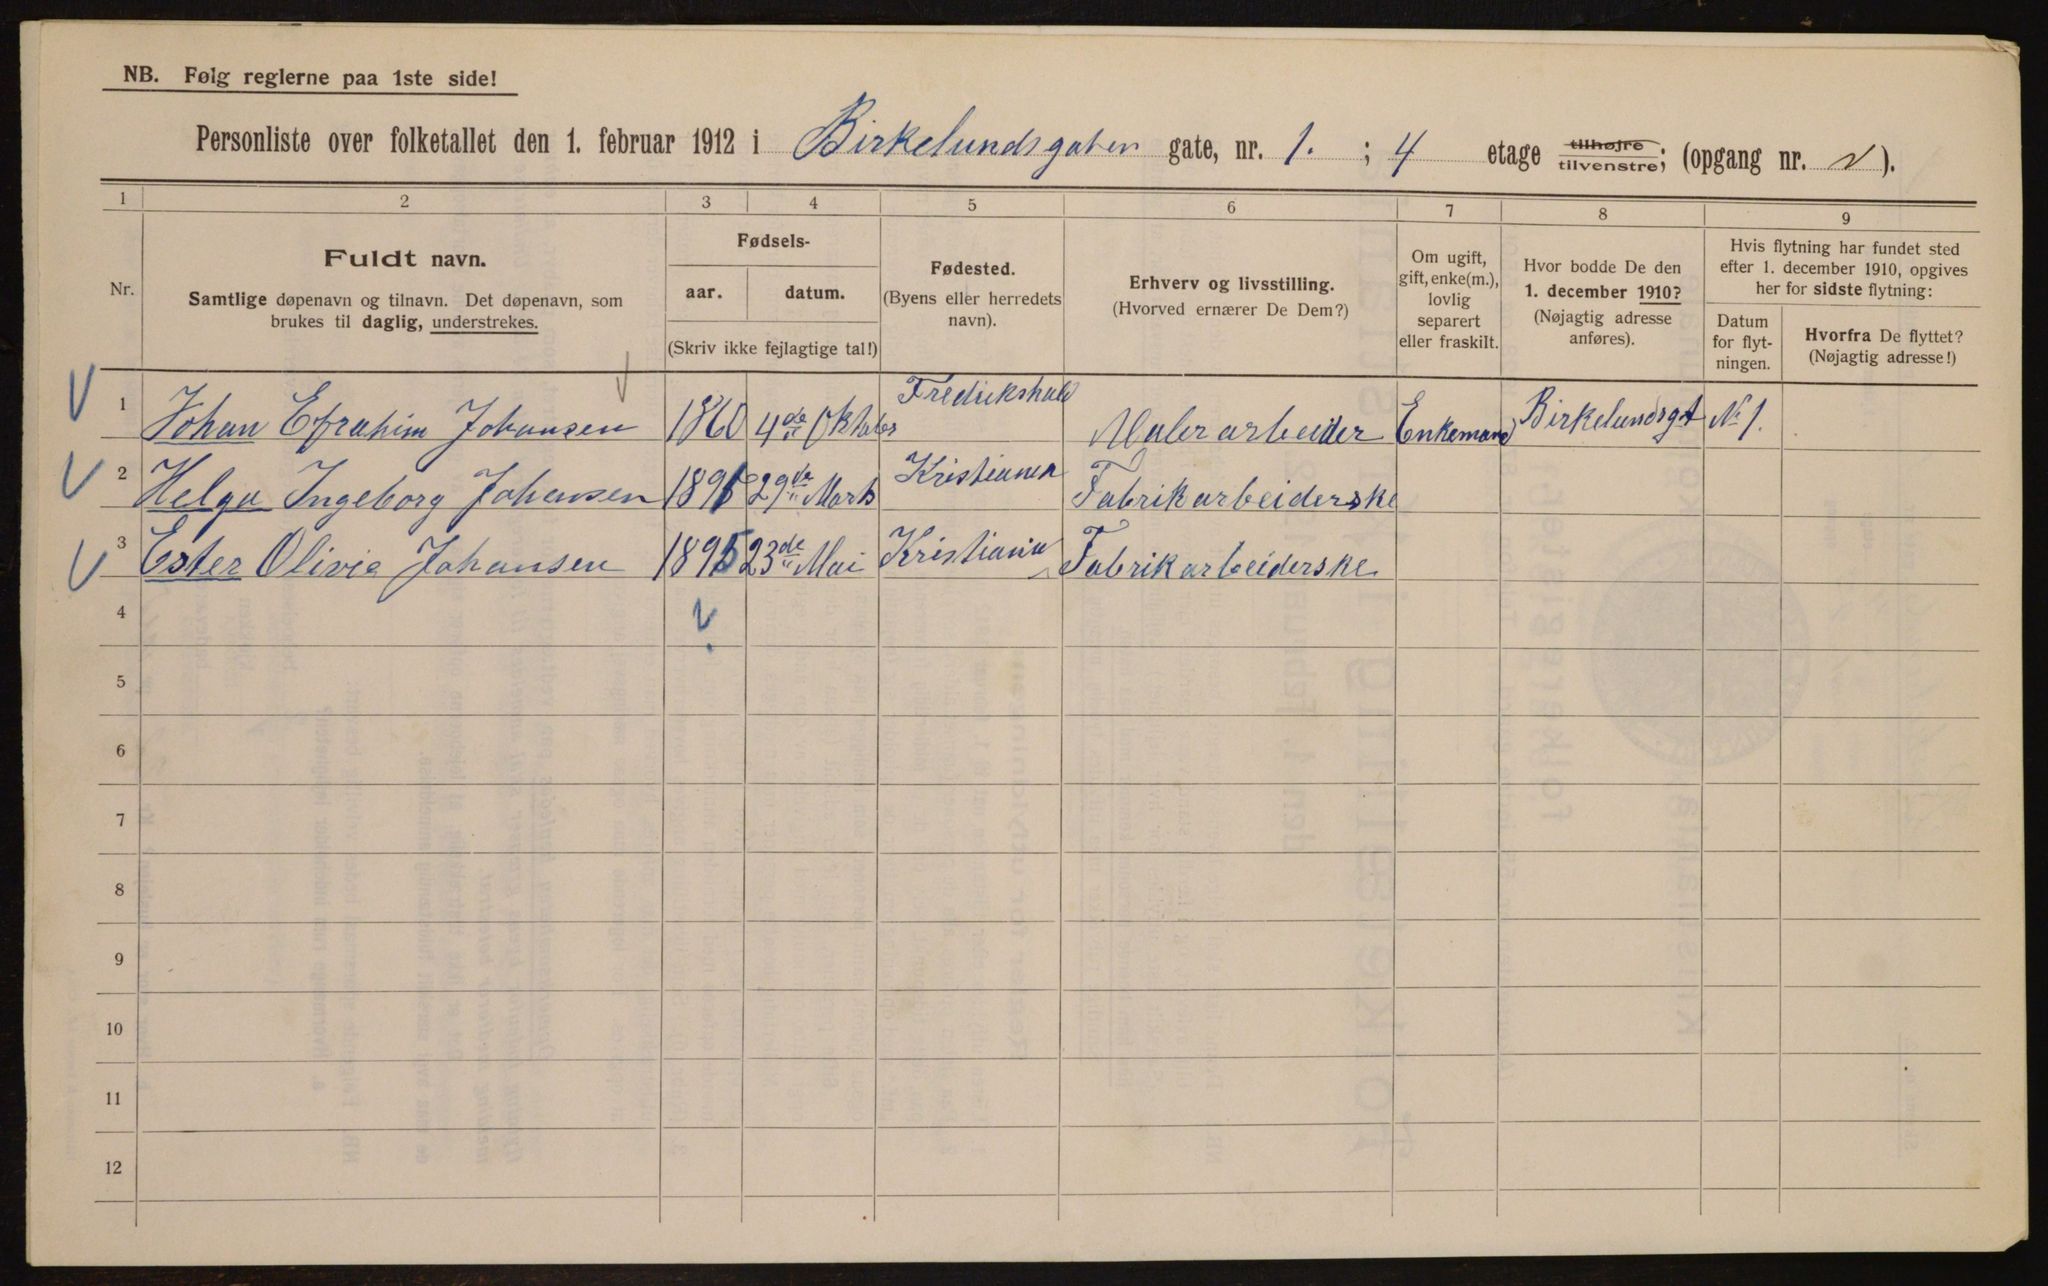 NB. Følg reglerne paa 1ste side!
Personliste over folketallet den 1. februar 1912 i Birkelundsgaten gate, nr. 1. ; 4 etage tilhøjre tilvenstre; (opgang nr. ).
1 2 3 4 5 6 7 8 9
Nr.
Fuldt navn.
Samtlige døpenavn og tilnavn. Det døpenavn, som
brukes til daglig, understrekes.
Fødsels-
aar. datum.
(Skriv ikke fejlagtige tal!)
Fødested.
(Byens eller herredets
navn).
Erhverv og livsstilling.
(Hvorved ernærer De Dem?)
Om ugift,
gift, enke(m.),
lovlig
separert
eller fraskilt.
Hvor bodde De den
1. december 1910?
(Nøjagtig adresse
anføres).
Hvis flytning har fundet sted
efter 1. december 1910, opgives
her for sidste flytning:
Datum
for flyt-
ningen.
Hvorfra De flyttet?
(Nøjagtig adresse!)
1 Johan Efrahim Johansen 1860 4de Oktober Fredrikshald Malerarbeider Enkemand Birkelundsgt No 1.
2 Helga Ingeborg Johansen 29de Marts Kristiania Fabrikarbeiderske
3 Ester Olivie Johansen 1895 23de Mai Kristiania Fabrikarbeiderske
4
5
6
7
8
9
10
11
12